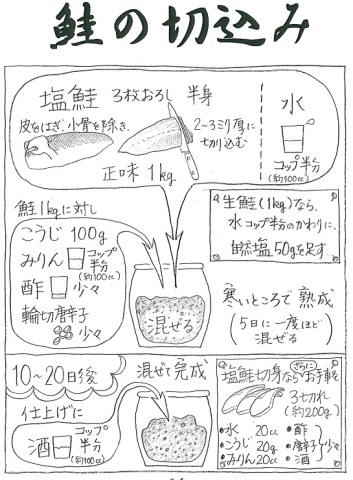 鮭の切込み
塩鮭 3枚おろし 半身
皮をはぎ、小骨を除き、
2～3ミリ厚に
切り込む
正味 1kg
水
コップ半分
(約100cc)
鮭1kgに対し
こうじ 100g
みりん コップ
半分
(約100cc)
酢 少々
輪切唐辛子
少々
生鮭(1kg)なら、
水コップ半分のかわりに、
自然塩50gを足す
混ぜる
寒いところで熟成
(5日に一度ほど
混ぜる)
10～20日後
混ぜて完成
仕上げに
酒 コップ
半分
(約100cc)
塩鮭切身ならさらにお手軽
3切れ
(約200g)
・水 20cc
・こうじ 20g
・みりん 20cc
・酢
・唐辛子
・酒
少々